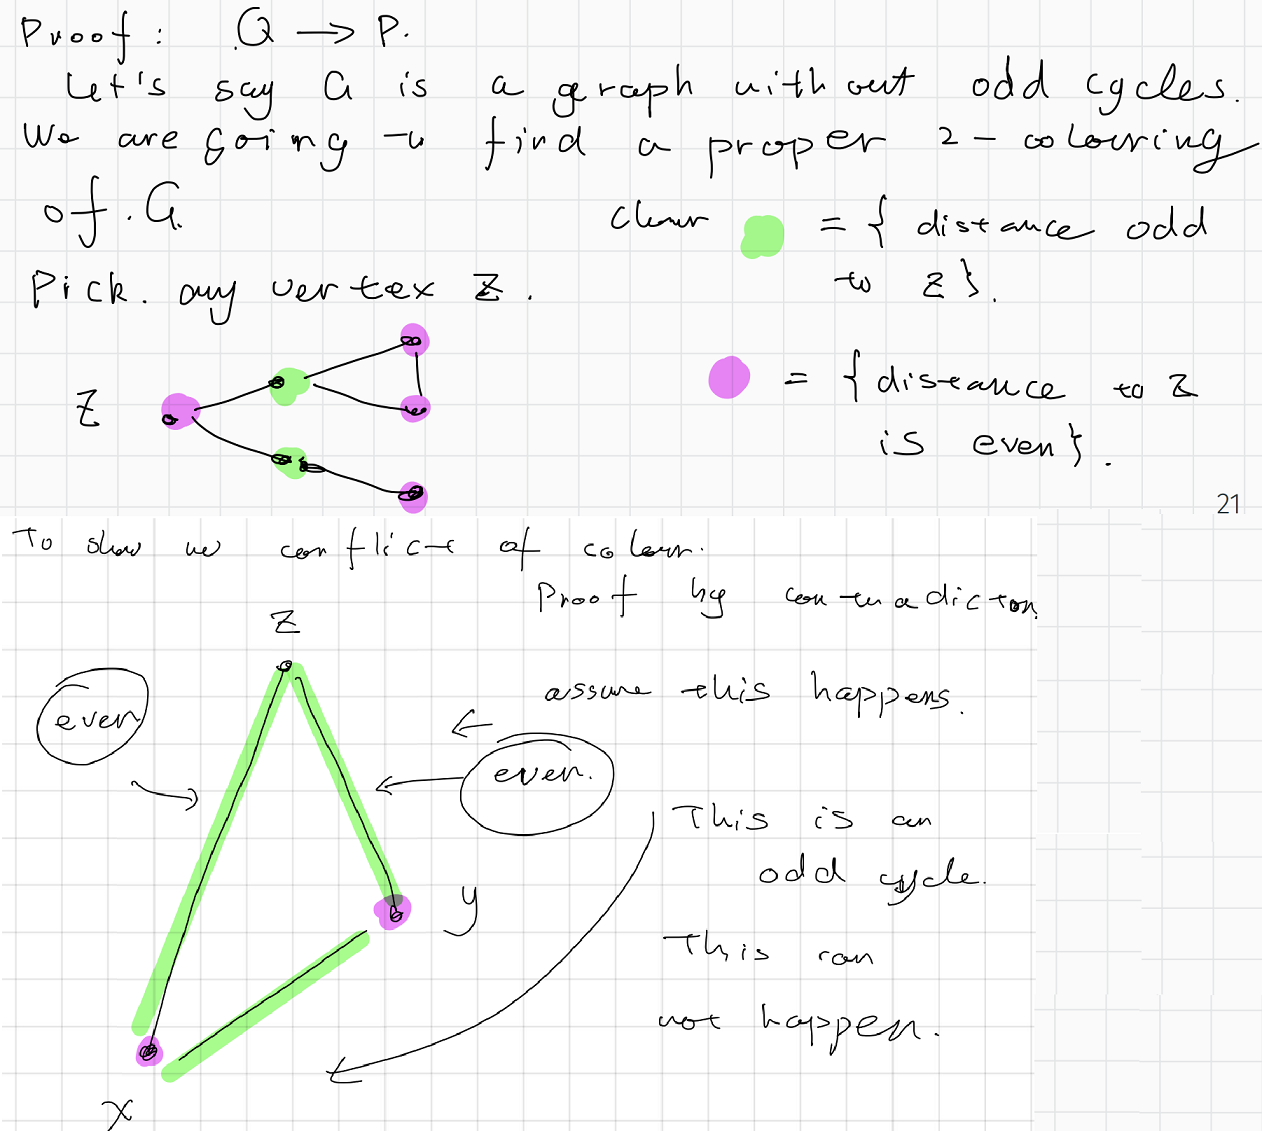 Proof: Q → P.
Let's say G is a graph without odd cycles.
We are going to find a proper 2-colouring
of G.
colour = { distance odd
to z }.
Pick any vertex z.
z
= { distance to z
is even }.
21
To show no conflict of colour.
Proof by contradiction.
z
assume this happens.
even
even.
This is an
odd cycle.
y
This can
not happen.
x